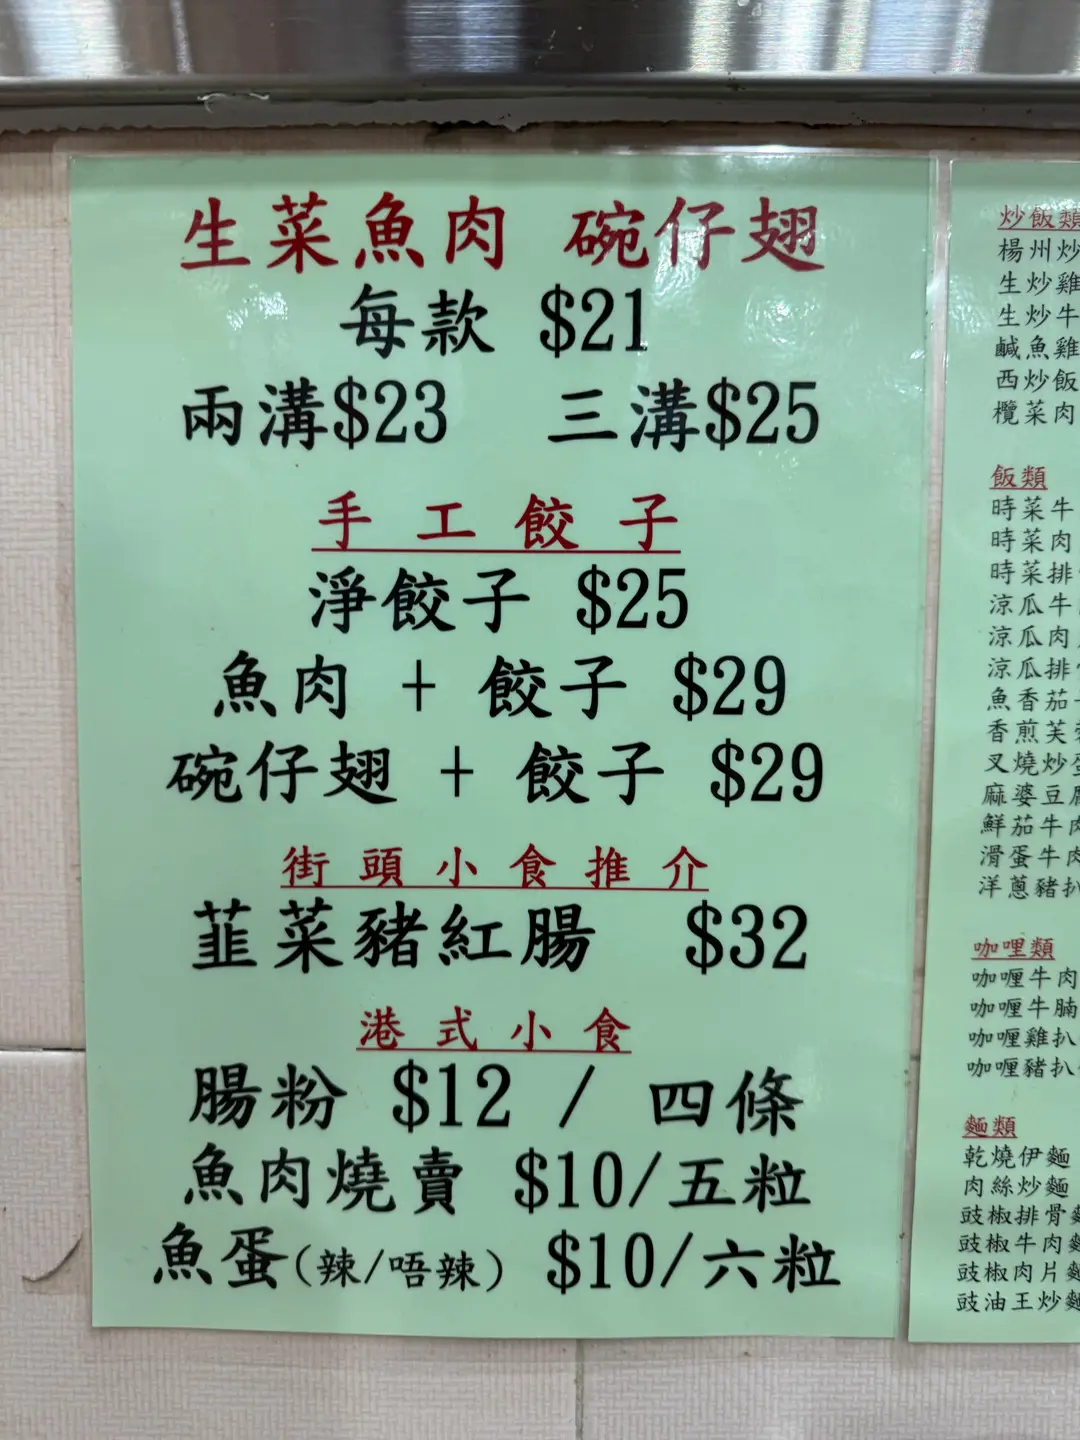 生菜魚肉 碗仔翅
每款 $21
兩溝$23 三溝$25
手工餃子
淨餃子 $25
魚肉 + 餃子 $29
碗仔翅 + 餃子 $29
街頭小食推介
韮菜豬紅腸 $32
港式小食
腸粉 $12 / 四條
魚肉燒賣 $10/五粒
魚蛋(辣/唔辣) $10/六粒
炒飯類
楊州炒
生炒雞
生炒牛
鹹魚雞
西炒飯
欖菜肉
飯類
時菜牛
時菜肉
時菜排
涼瓜牛
涼瓜肉
涼瓜排
魚香茄
香煎芙
叉燒炒蛋
麻婆豆腐
鮮茄牛肉
滑蛋牛肉
洋蔥豬扒
咖哩類
咖喱牛肉
咖喱牛腩
咖喱雞扒
咖喱豬扒
麵類
乾燒伊麵
肉絲炒麵
豉椒排骨麵
豉椒牛肉麵
豉椒肉片麵
豉油王炒麵